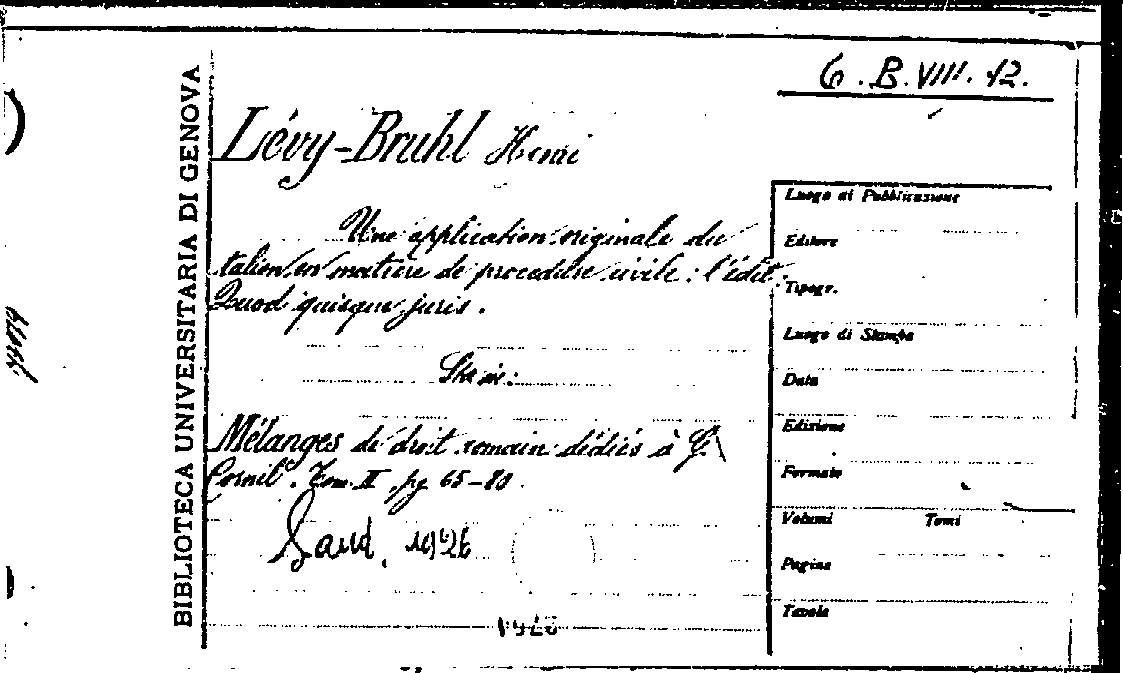 6. B. VIII. 12.
BIBLIOTECA UNIVERSITARIA DI GENOVA
Lévy-Bruhl Henri
Une application originale du
talion en matière de procédure civile: l'édit
Quod quisque juris.
Sta in:
Mélanges de droit romain dédiés à G.
Cornil. Tom. II, pg. 65-80.
Gand, 1926
1926
Luogo di Pubblicazione
Editore
Tipogr.
Luogo di Stampa
Data
Edizione
Formato
Volumi Tomi
Pagine
Tavole